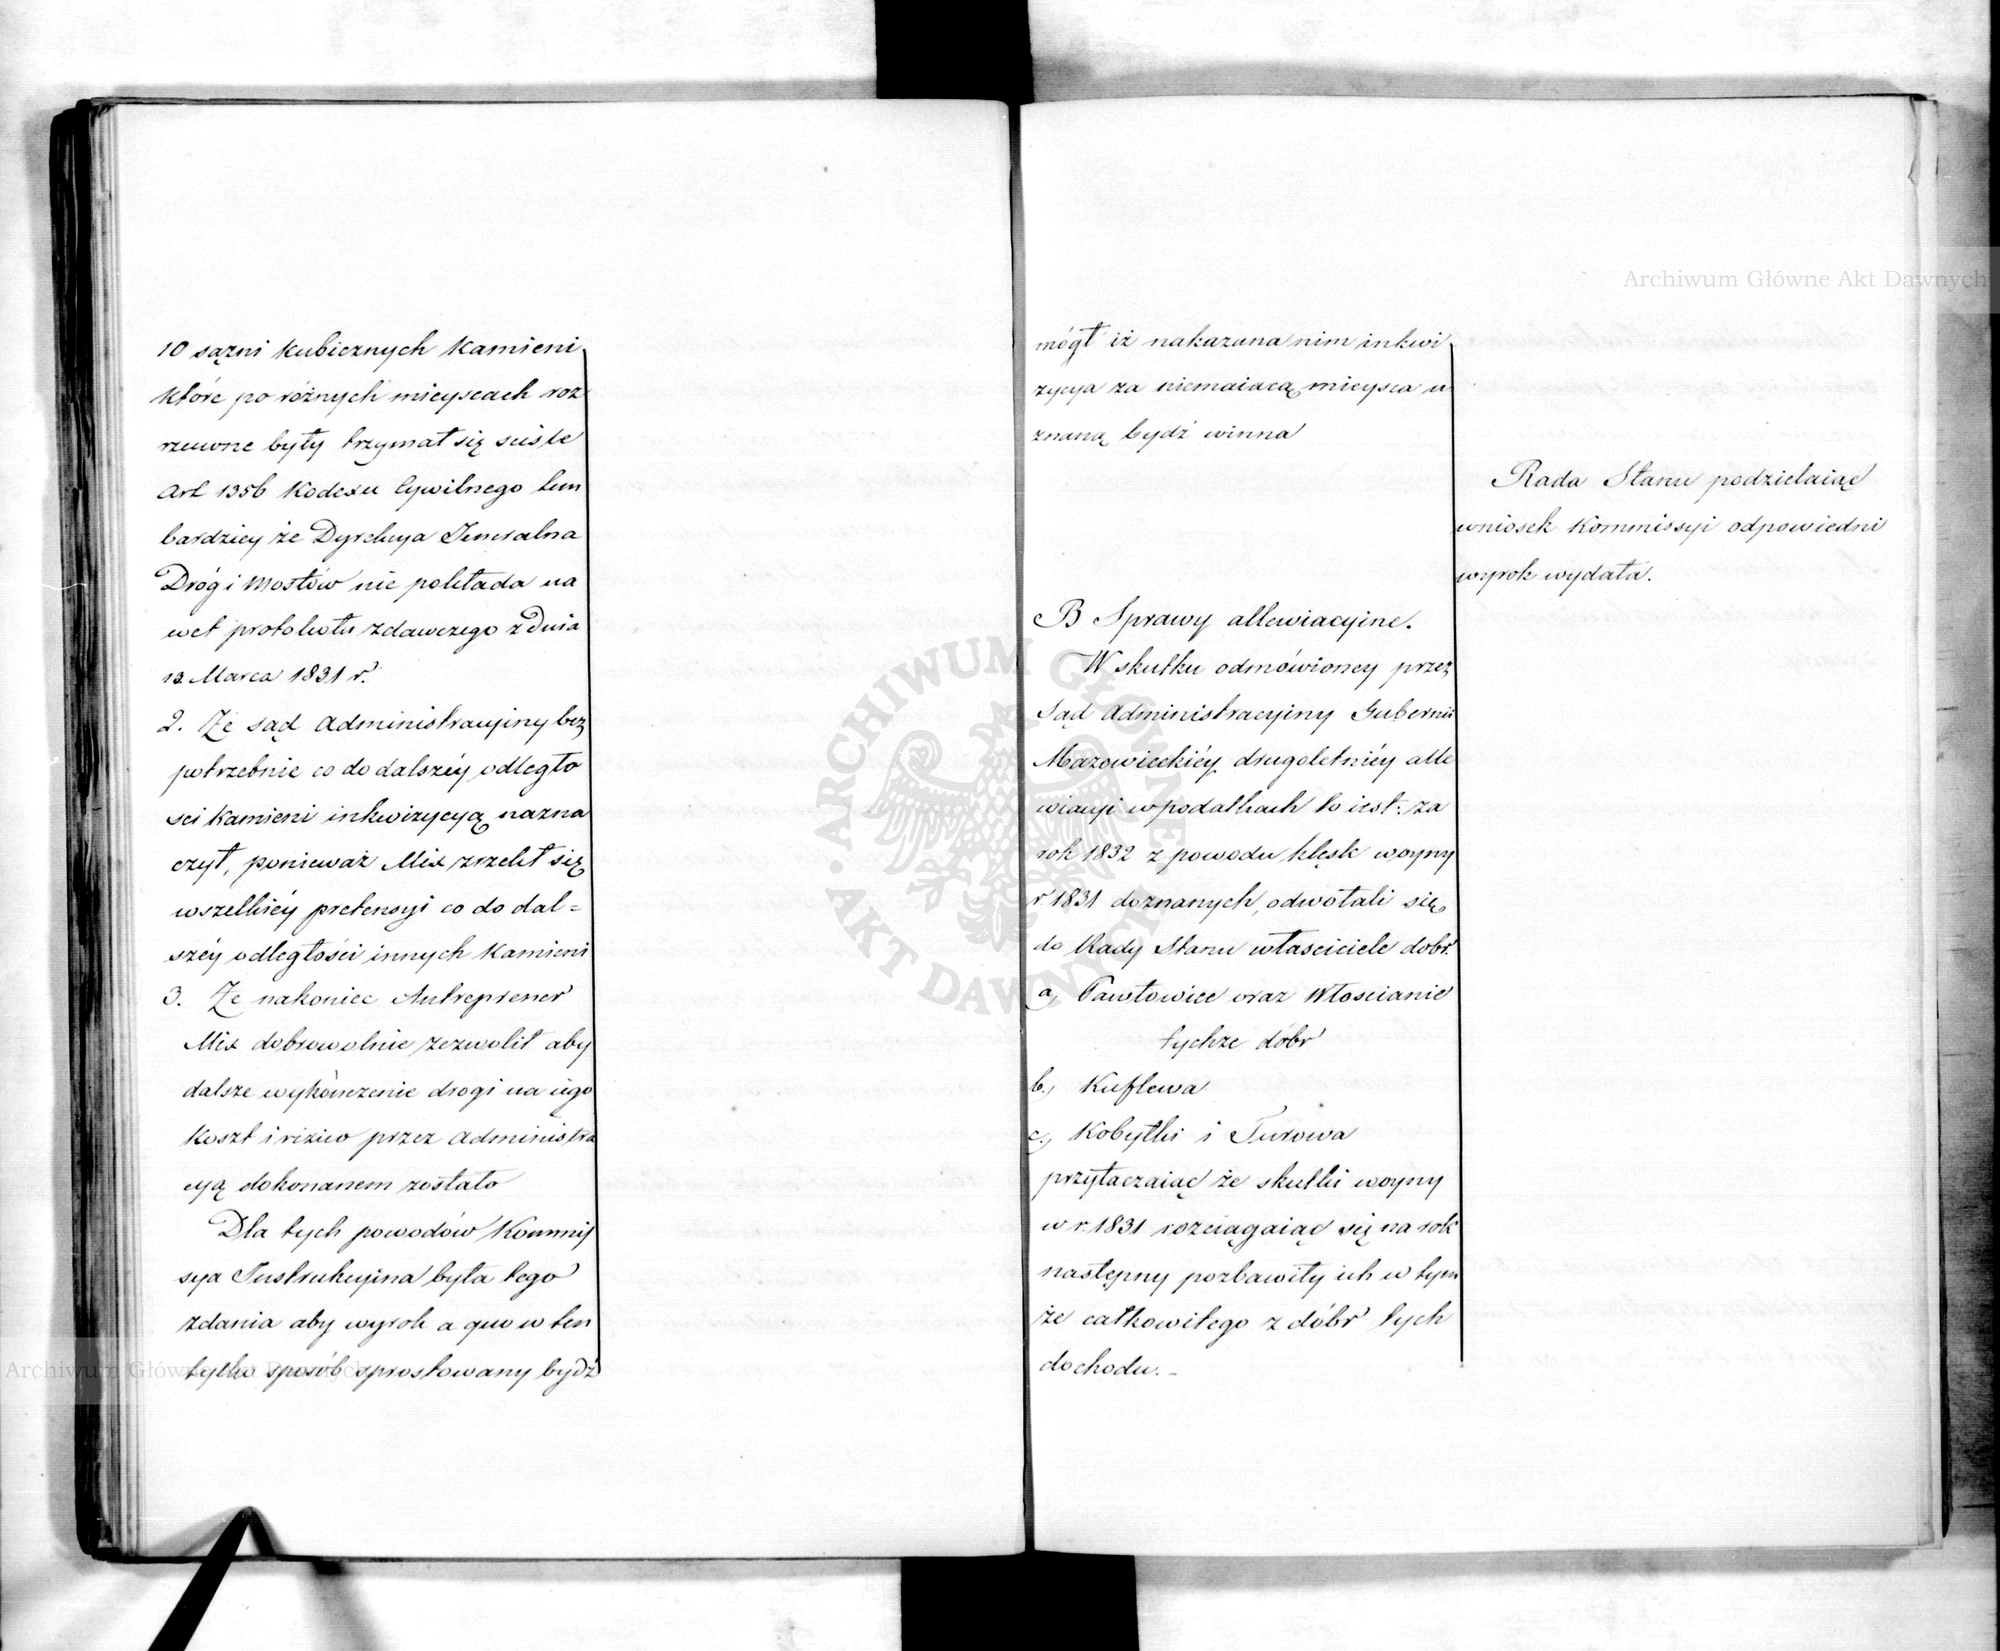 10 sązni kubicznych kamieni
które po różnych mieyscach roz
rzucone były trzymał się sciśle
Art 1356 Kodexu Cywilnego tem
bardziey że Dyrekcya Jeneralna
Dróg i Mostów nie pokłada na
wet protokołu zdawczego z Dnia
13. Marca 1831 r.
2. Że sąd Administracyiny bez
potrzebnie co do dalszéy odległo
sci kamieni inkwizycyą nazna
czył, ponieważ Mix zrzekł się
wszelkiéy pretensyi co do dal=
széy odległości innych kamieni
3. Że nakoniec Antreprener
Mix dobrowolnie zezwolił aby
dalsze wykończenie drogi na iego
koszt i riziko przez Administra
cyą dokonanem zostało
Dla tych powodów Kommis
sya Instrukcyina była tego
zdania aby wyrok a quo w ten
tylko sposób sprostowany bydź
mógł iż nakazana nim inkwi
zycya za niemaiącą mieysca u
znaną bydź winna
Rada Stanu podzielaiąc
wniosek Kommissyi odpowiedni
wyrok wydała.
B Sprawy allewiacyine.
W skutku odmówioney przez
Sąd Administracyiny Gubernii
Mazowieckiéy drugoletniéy alle
wiacyi w podatkach to iest: za
rok 1832 z powodu klęsk woyny
r. 1831 doznanych, odwołali się
do Rady Stanu właściciele dobr.
a, Pawłowice oraz Włoscianie
tychże dóbr
b., Kuflewa
c., Kobyłki i Turowa
przytaczaiąc że skutki woyny
w r. 1831 rozciągaiąc się na rok
następny pozbawiły ich w tym
że całkowitego z dóbr tych
dochodu._
Archiwum Główne Akt Dawnych
ARCHIWUM GŁÓWNE AKT DAWNYCH
Archiwum Główne Akt Dawnych